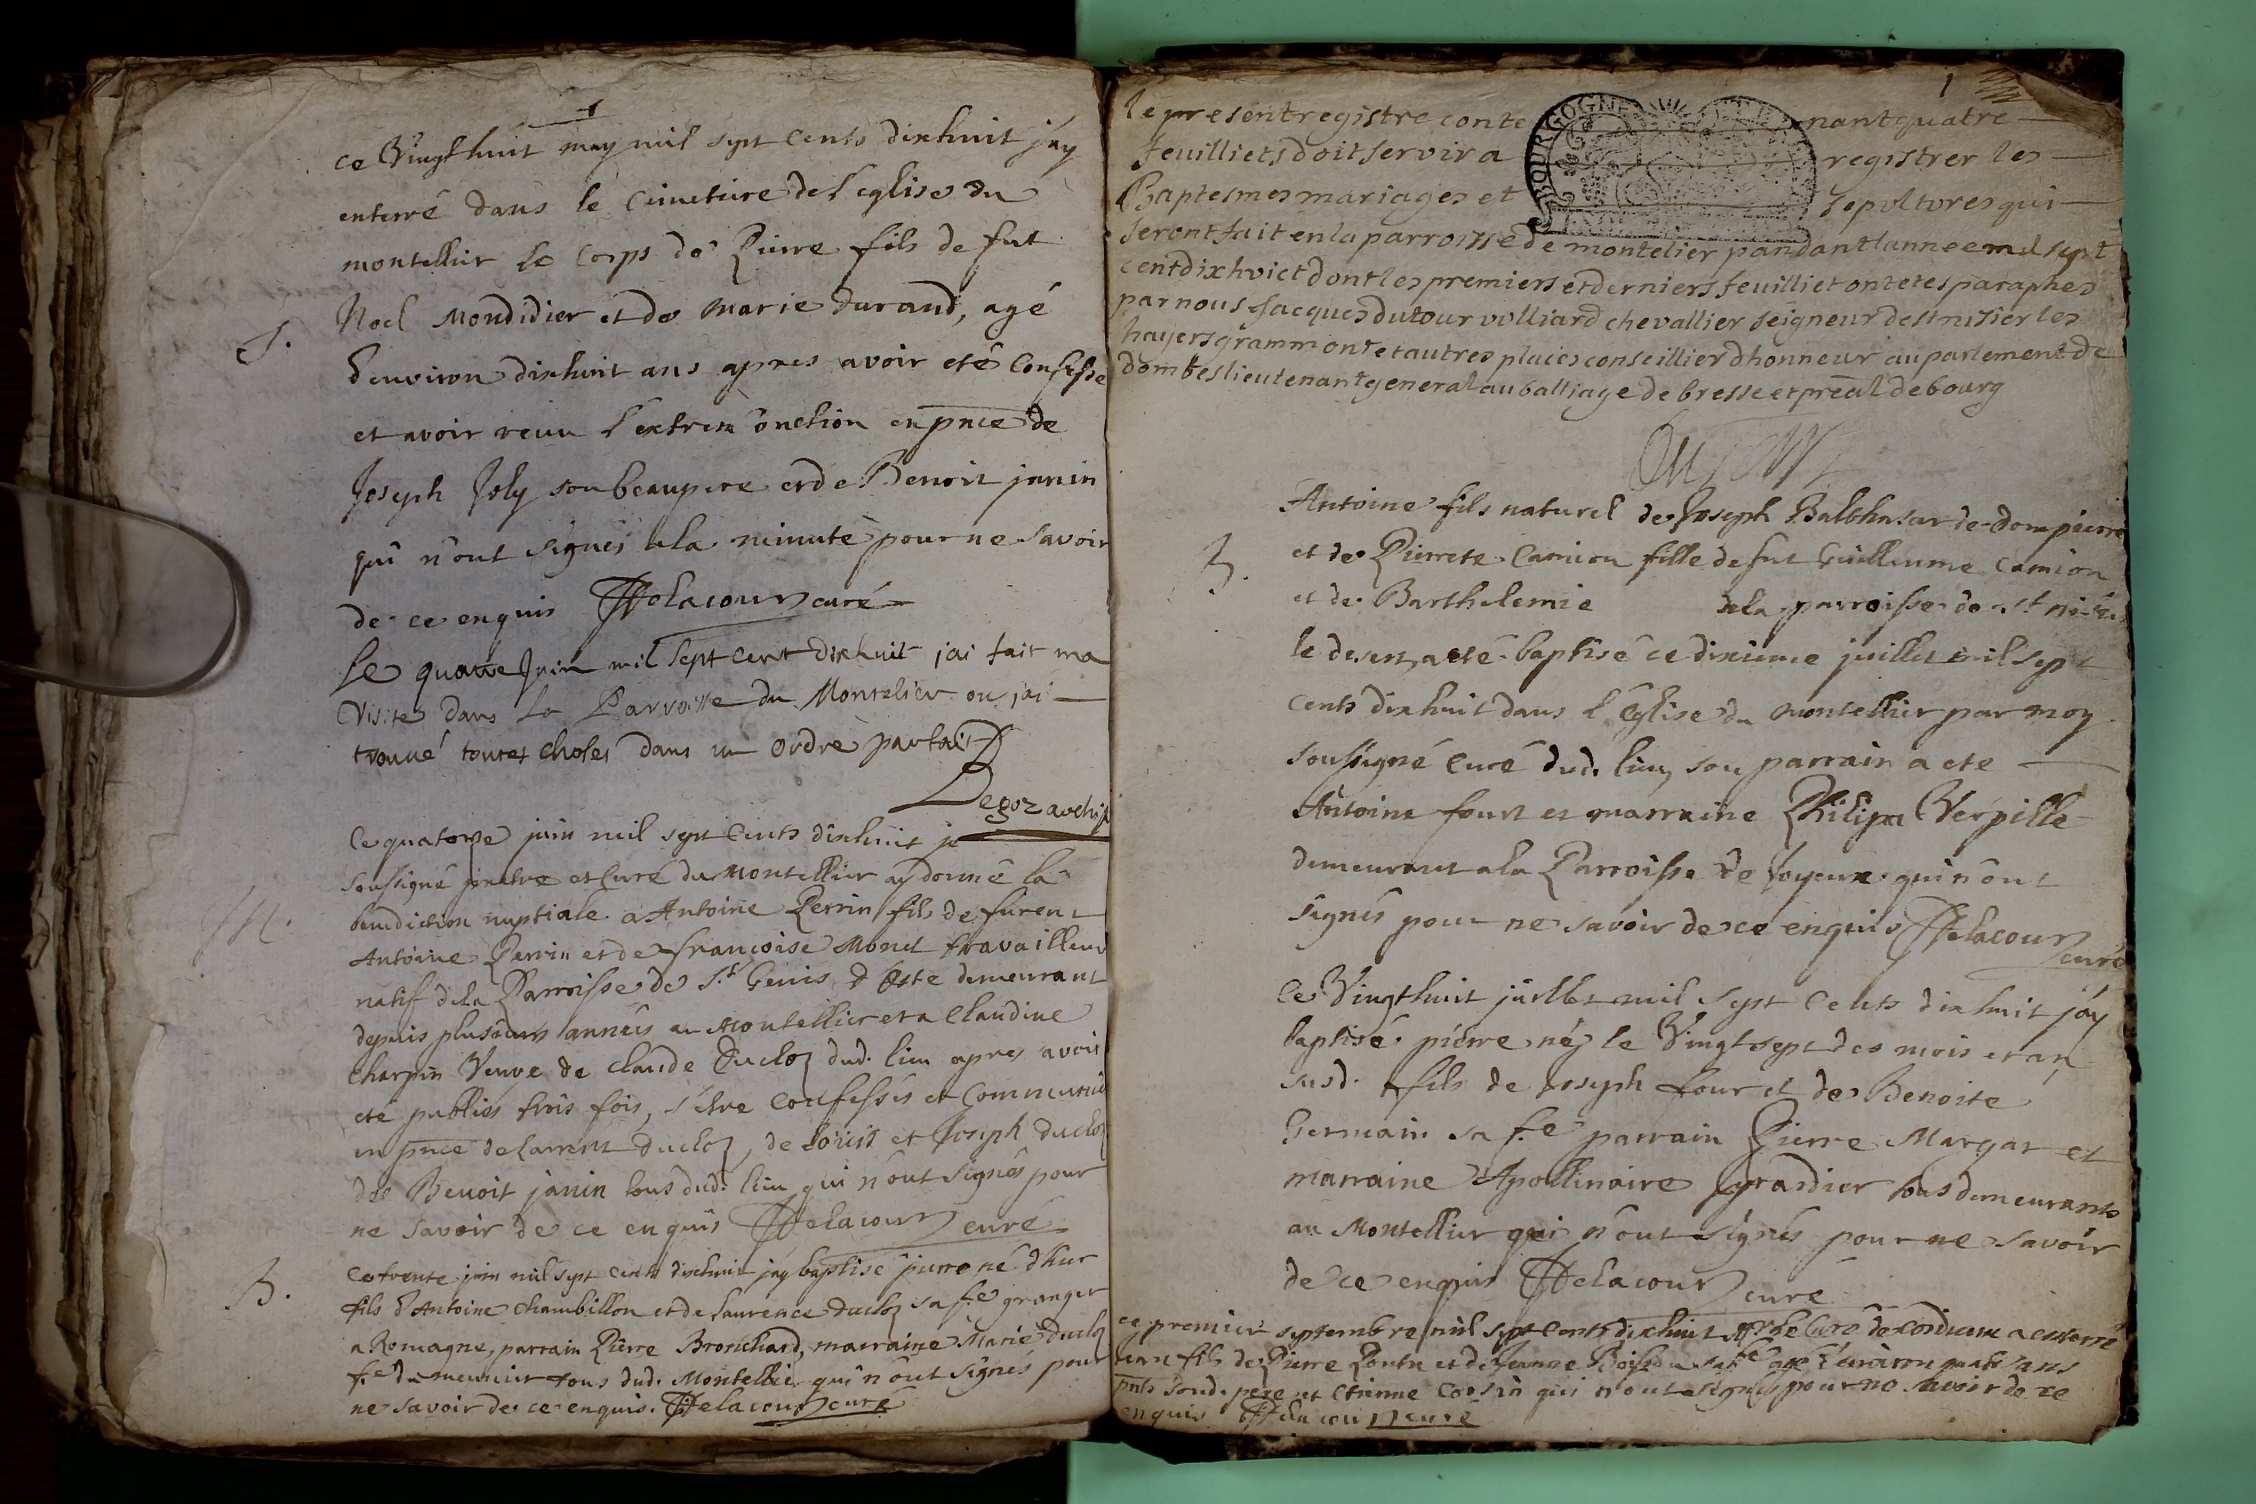 1
ce Vingt huit may mil sept cents dixhuit j'ay
enterré dans le cimetiere de l'eglise du
montellier le corps de Pierre fils de fut
S. Noel Mondidier et de marie durand, agé
d'environ dixhuit ans apres avoir eté confessé
et avoir receu l'extrem' onction en pnce de
Joseph Joly son beaupere et de Benoit janin
qui n'ont signés a la minute pour ne savoir
de ce enquis Delacour curé
Le quatre Juin mil sept cent dixhuit j'ai fait ma
visite dans la Parroisse du Montelier ou j'ai
trouvé toutes choses dans un ordre parfait
Degoz
Ce quatorze juin mil sept cents dixhuit je
soussigné prestre et curé du Montellier ay donné la
M. benediction nuptiale a Antoine Perrin fils de furent
Antoine Perrin et de françoise Monet travailleur
natif de la Parroisse de St Genis d'Oste demeurant
depuis plusieurs années au Montellier et a Claudine
Charpin Veuve de Claude Ducloz dud. lieu apres avoir
eté publiés trois fois, s'etre confessés et communiés
en pnce de Laurent Ducloz, de Louis et Joseph Ducloz
de Benoit janin tous dud. lieu qui n'ont signés pour
ne savoir de ce enquis Delacour curé
B. Ce trente juin mil sept cents dixhuit j'ay baptisé pierre né d'hier
fils d'Antoine Chambillon et de laurence Ducloz sa f.e granger
a Romagne, parrain Pierre Bronchard, marraine Marie Ducloz
f.e du meunier tous dud. Montellier qui n'ont signés pour
ne savoir de ce enquis. Delacour curé
1
le present registre contenant quatre
feuilliets doit servir a registrer les
BOURGOGNE
Baptesmes mariages et sepultures qui
seront fait en la parroisse de montelier pandant lannee mil sept
cent dixhuict dont les premiers et derniers feuilliet ont etes paraphes
par nous Jacques dutour vulliard chevallier seigneur de st nisier les
hayers grammont et autres places conseillier dhonneur au parlement de
dombes lieutenant general au balliage de bresse et preal de bourg
Antoine fils naturel de Joseph Balthasar de dompierre
B. et de Pierrete Camion fille de fut Guilleaume Camion
et de Barthelemie de la parroisse de St
le desert, a eté baptisé ce dixieme juillet mil sept
cents dixhuit dans l'Eglise du montellier par moy
soussigné Curé dud. lieu, son parrain a eté
Antoine four et marraine Philipa Verpille
demeurant a la Parroisse de Joyeux qui n'ont
signés pour ne savoir de ce enquis Delacour
curé
Ce Vingthuit juillet mil sept cents dixhuit j'ay
baptisé pierre né le Vingtsept des mois et an
susd. fils de Joseph four et de Benoite
Germain sa f.e parrain Pierre Margat et
marraine Apollinaire Grandier tous demeurants
au Montellier qui n'ont signés pour ne savoir
de ce enquis Delacour curé
ce premier septembre mil sept cents dixhuit Mr le Curé de Cordieux a enterré
jean fils de Pierre Pontu et de Jeanne sa f.e agé d'environ quatre ans
pnts Soud. pere et Etienne Cousin qui n'ont signés pour ne savoir de ce
enquis Delacour curé